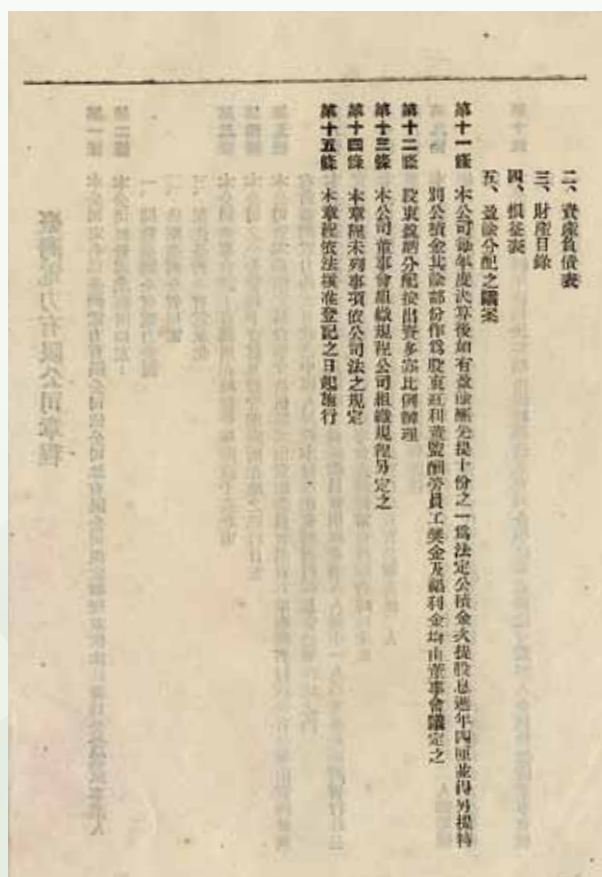 二、資產負債表
三、財產目錄
四、損益表
五、盈餘分配之議案
第十一條 本公司每年度決算後如有盈餘應先提十份之一為法定公積金次提股息週年四厘並得另提特
別公積金其餘部份作為股東紅利董監酬勞員工獎金及福利金均由董事會議定之
第十二條 股東盈餘分配按出資多寡比例辦理
第十三條 本公司董事會組織規程公司組織規程另定之
第十四條 本章程未列事項依公司法之規定
第十五條 本章程依法核准登記之日起施行